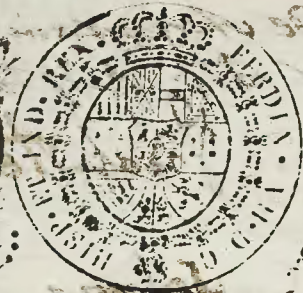 FERDIN · VII · D · G · HISP · ET IND. REX.